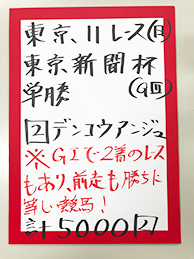 東京、11レース(日)
東京新聞杯
単勝 (9日)
2デンコウアンジュ
※GIで2着のレス
もあり、前走も勝ちに
等しい競馬!
計5000円